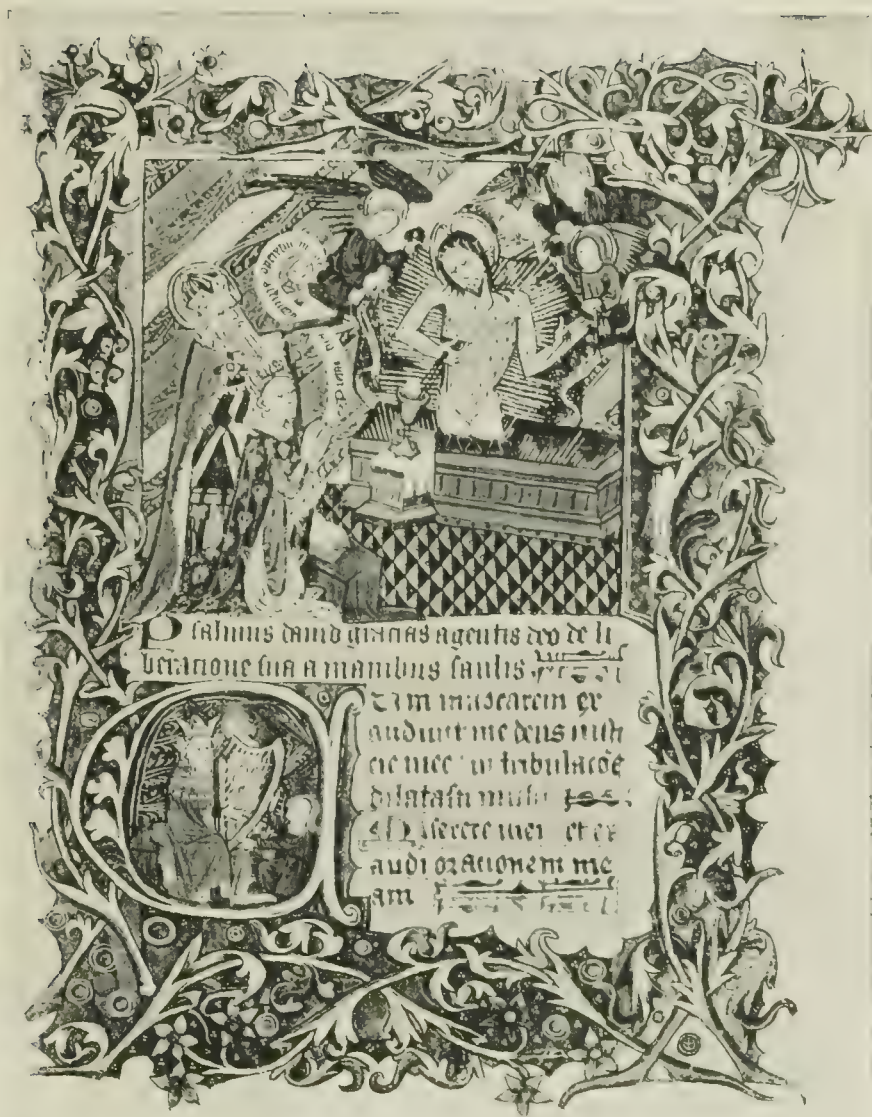 Psalmus david gracias agentis deo de li
beracione sua a manibus saulis
um invocarem ex
audivit me deus iusti
cie mee in tribulacõe
dilatasti michi
Miserere mei et ex
audi orationem me
am